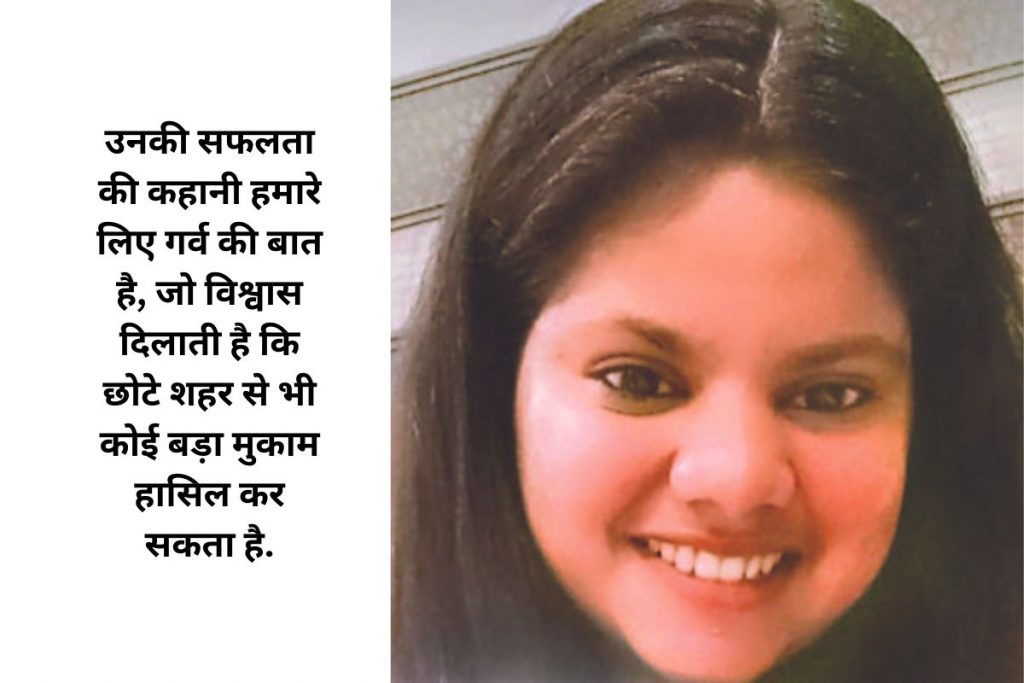 उनकी सफलता
की कहानी हमारे
लिए गर्व की बात
है, जो विश्वास
दिलाती है कि
छोटे शहर से भी
कोई बड़ा मुकाम
हासिल कर
सकता है.